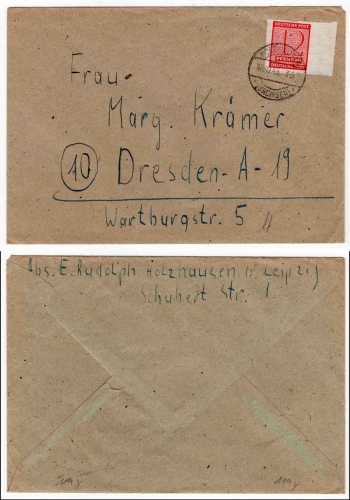 DEUTSCHE POST
12
PFENNIG
Frau
Marg. Krämer
10 Dresden-A-19
Wartburgstr. 5
Abs. E. Rudolph Holzhausen b. Leipzig
Schubert Str. 1